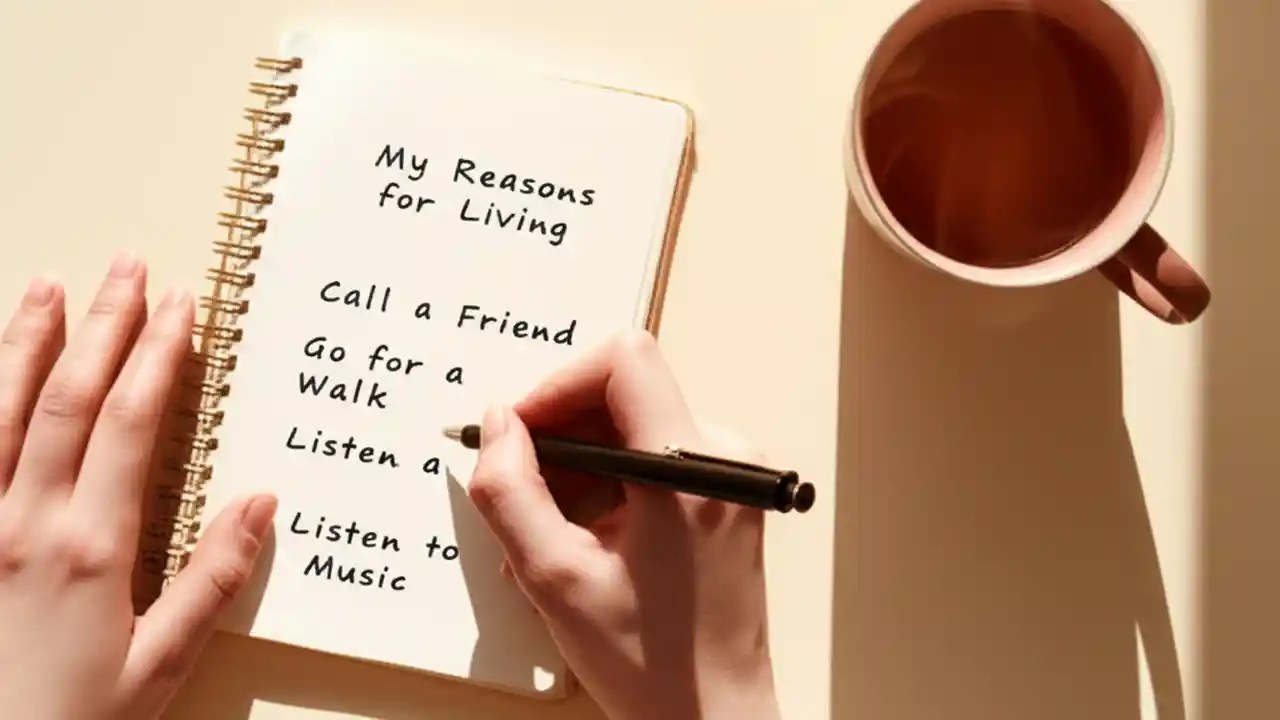 My Reasons
for Living
Call a Friend
Go for a
Walk
Listen a
Listen to
Music